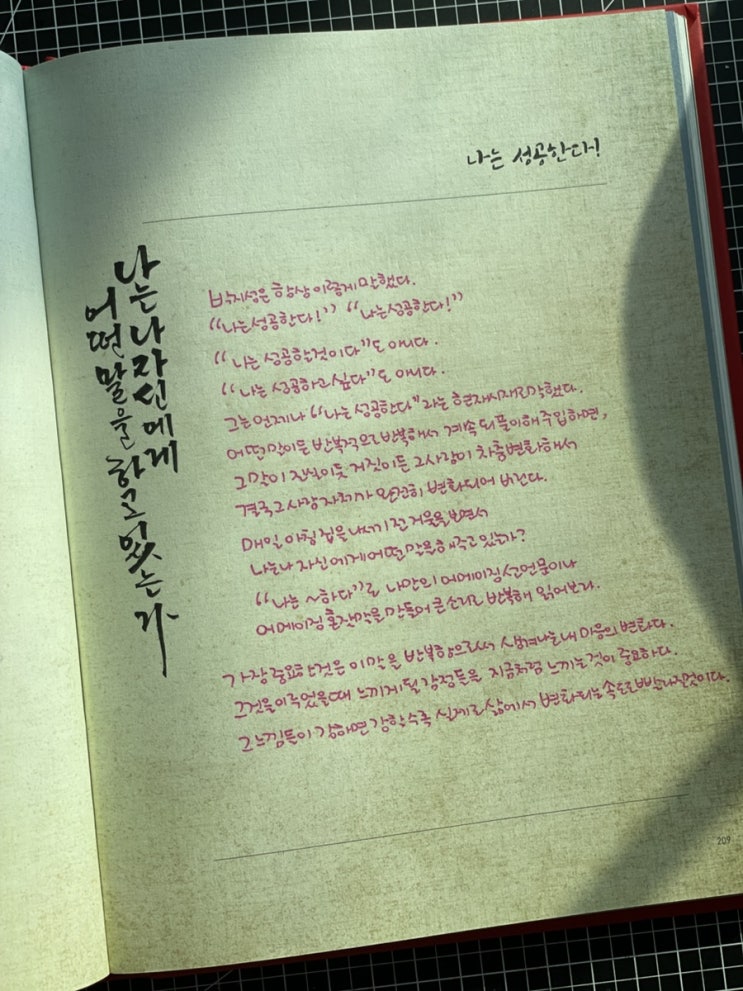 나는 성공한다!
나는 나 자신에게
어떤 말을 하고 있는가
박지성은 항상 이렇게 말했다.
“나는 성공한다!” “나는 성공한다!”
“나는 성공할 것이다”도 아니다.
“나는 성공하고 싶다”도 아니다.
그는 언제나 “나는 성공한다”라는 현재시제로 말했다.
어떤 말이든 반복적으로 반복해서 계속 되풀이해 주입하면,
그 말이 진실이듯 거짓이든 그 사람이 차츰 변화해서
결국 그 사람 자체가 완전히 변화되어 버린다.
매일 아침 집을 나서기 전 거울을 보면서
나는 나 자신에게 어떤 말을 해주고 있는가?
“나는 ~하다”로 나만의 어메이징 선언문이나
어메이징 혼잣말을 만들어 큰소리로 반복해 읽어보라.
가장 중요한 것은 이 말을 반복함으로써 생겨나는 내 마음의 변화다.
그것을 이루었을 때 느끼게 될 감정들을 지금처럼 느끼는 것이 중요하다.
그 느낌들이 강하면 강할수록 실제로 삶에서 변화되는 속도도 빨라질 것이다.
209